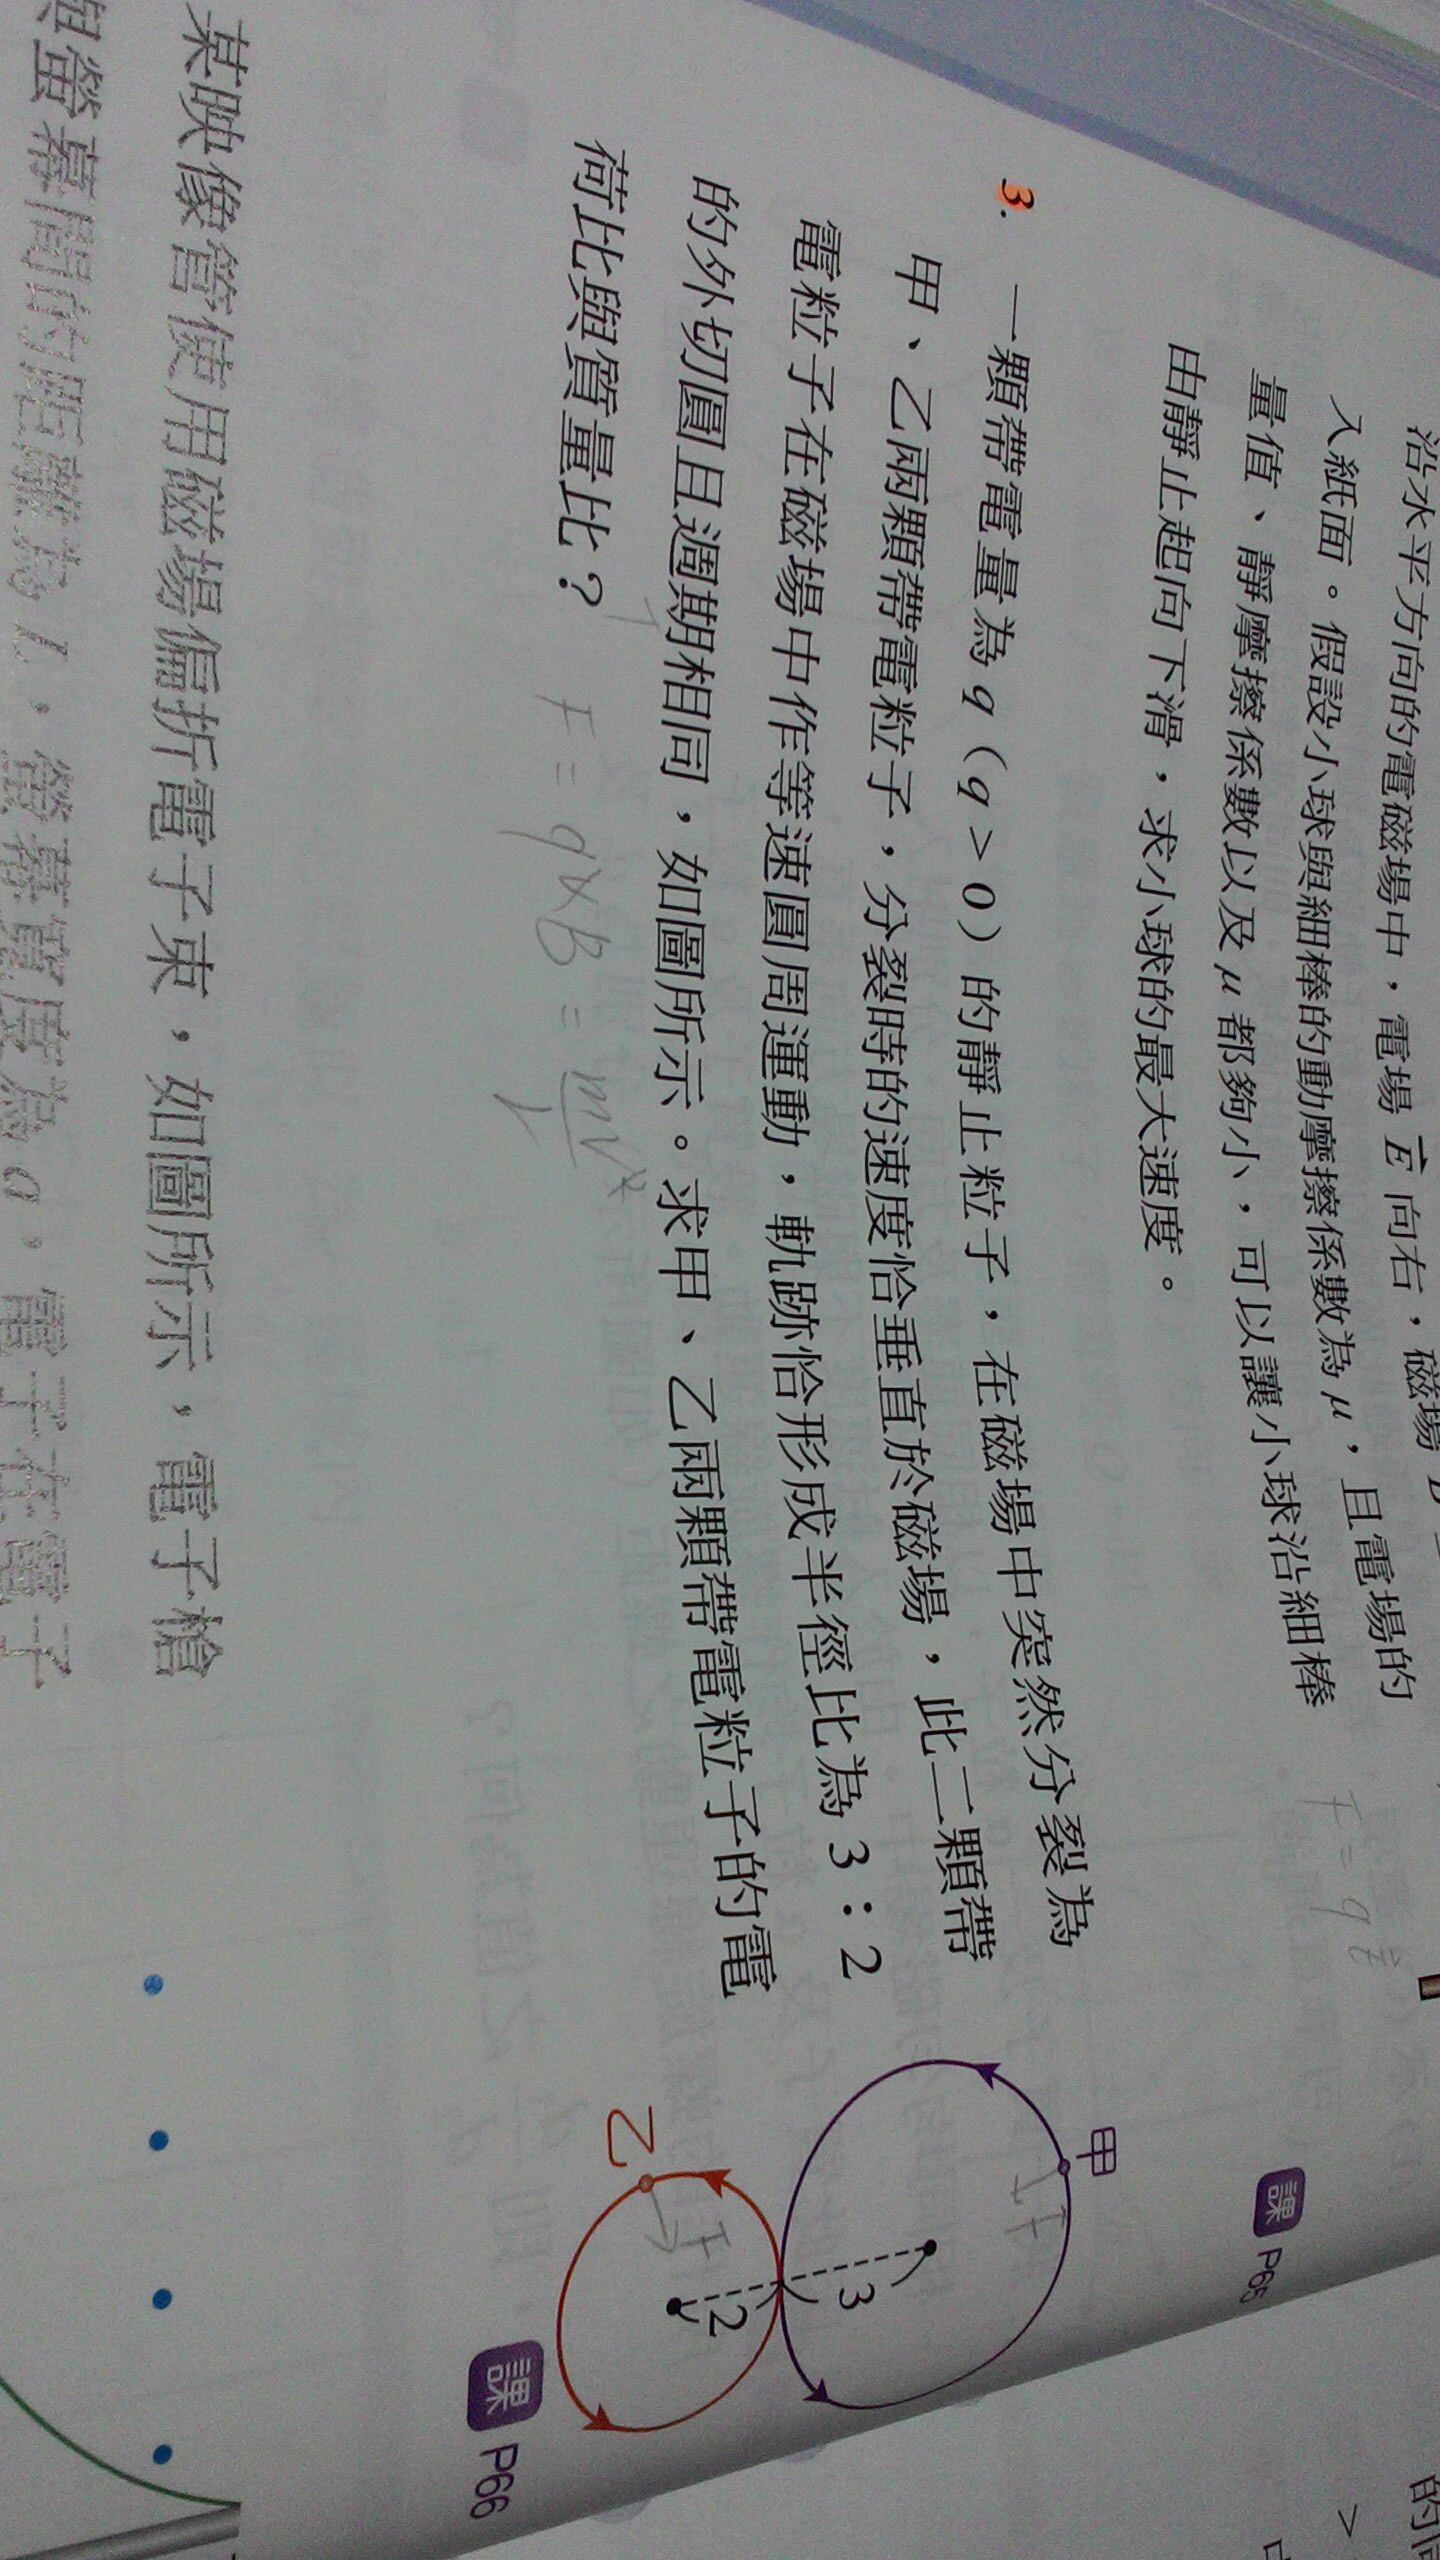 沿水平方向的電磁場中，電場 E 向右，磁場
入紙面。假設小球與細棒的動摩擦係數為 μ，且電場的
量值、靜摩擦係數以及 μ 都夠小，可以讓小球沿細棒
由靜止起向下滑，求小球的最大速度。
F = qE
課 P65
3. 一顆帶電量為 q（q > 0）的靜止粒子，在磁場中突然分裂為
甲、乙兩顆帶電粒子，分裂時的速度恰垂直於磁場，此二顆帶
電粒子在磁場中作等速圓周運動，軌跡恰形成半徑比為 3：2
的外切圓且週期相同，如圖所示。求甲、乙兩顆帶電粒子的電
荷比與質量比？
甲
3
2
乙
F
F
F = qvB = mv²
課 P66
某映像管使用磁場偏折電子束，如圖所示，電子槍
與螢幕間的距離為 L，螢幕寬度為 a，電子在電子